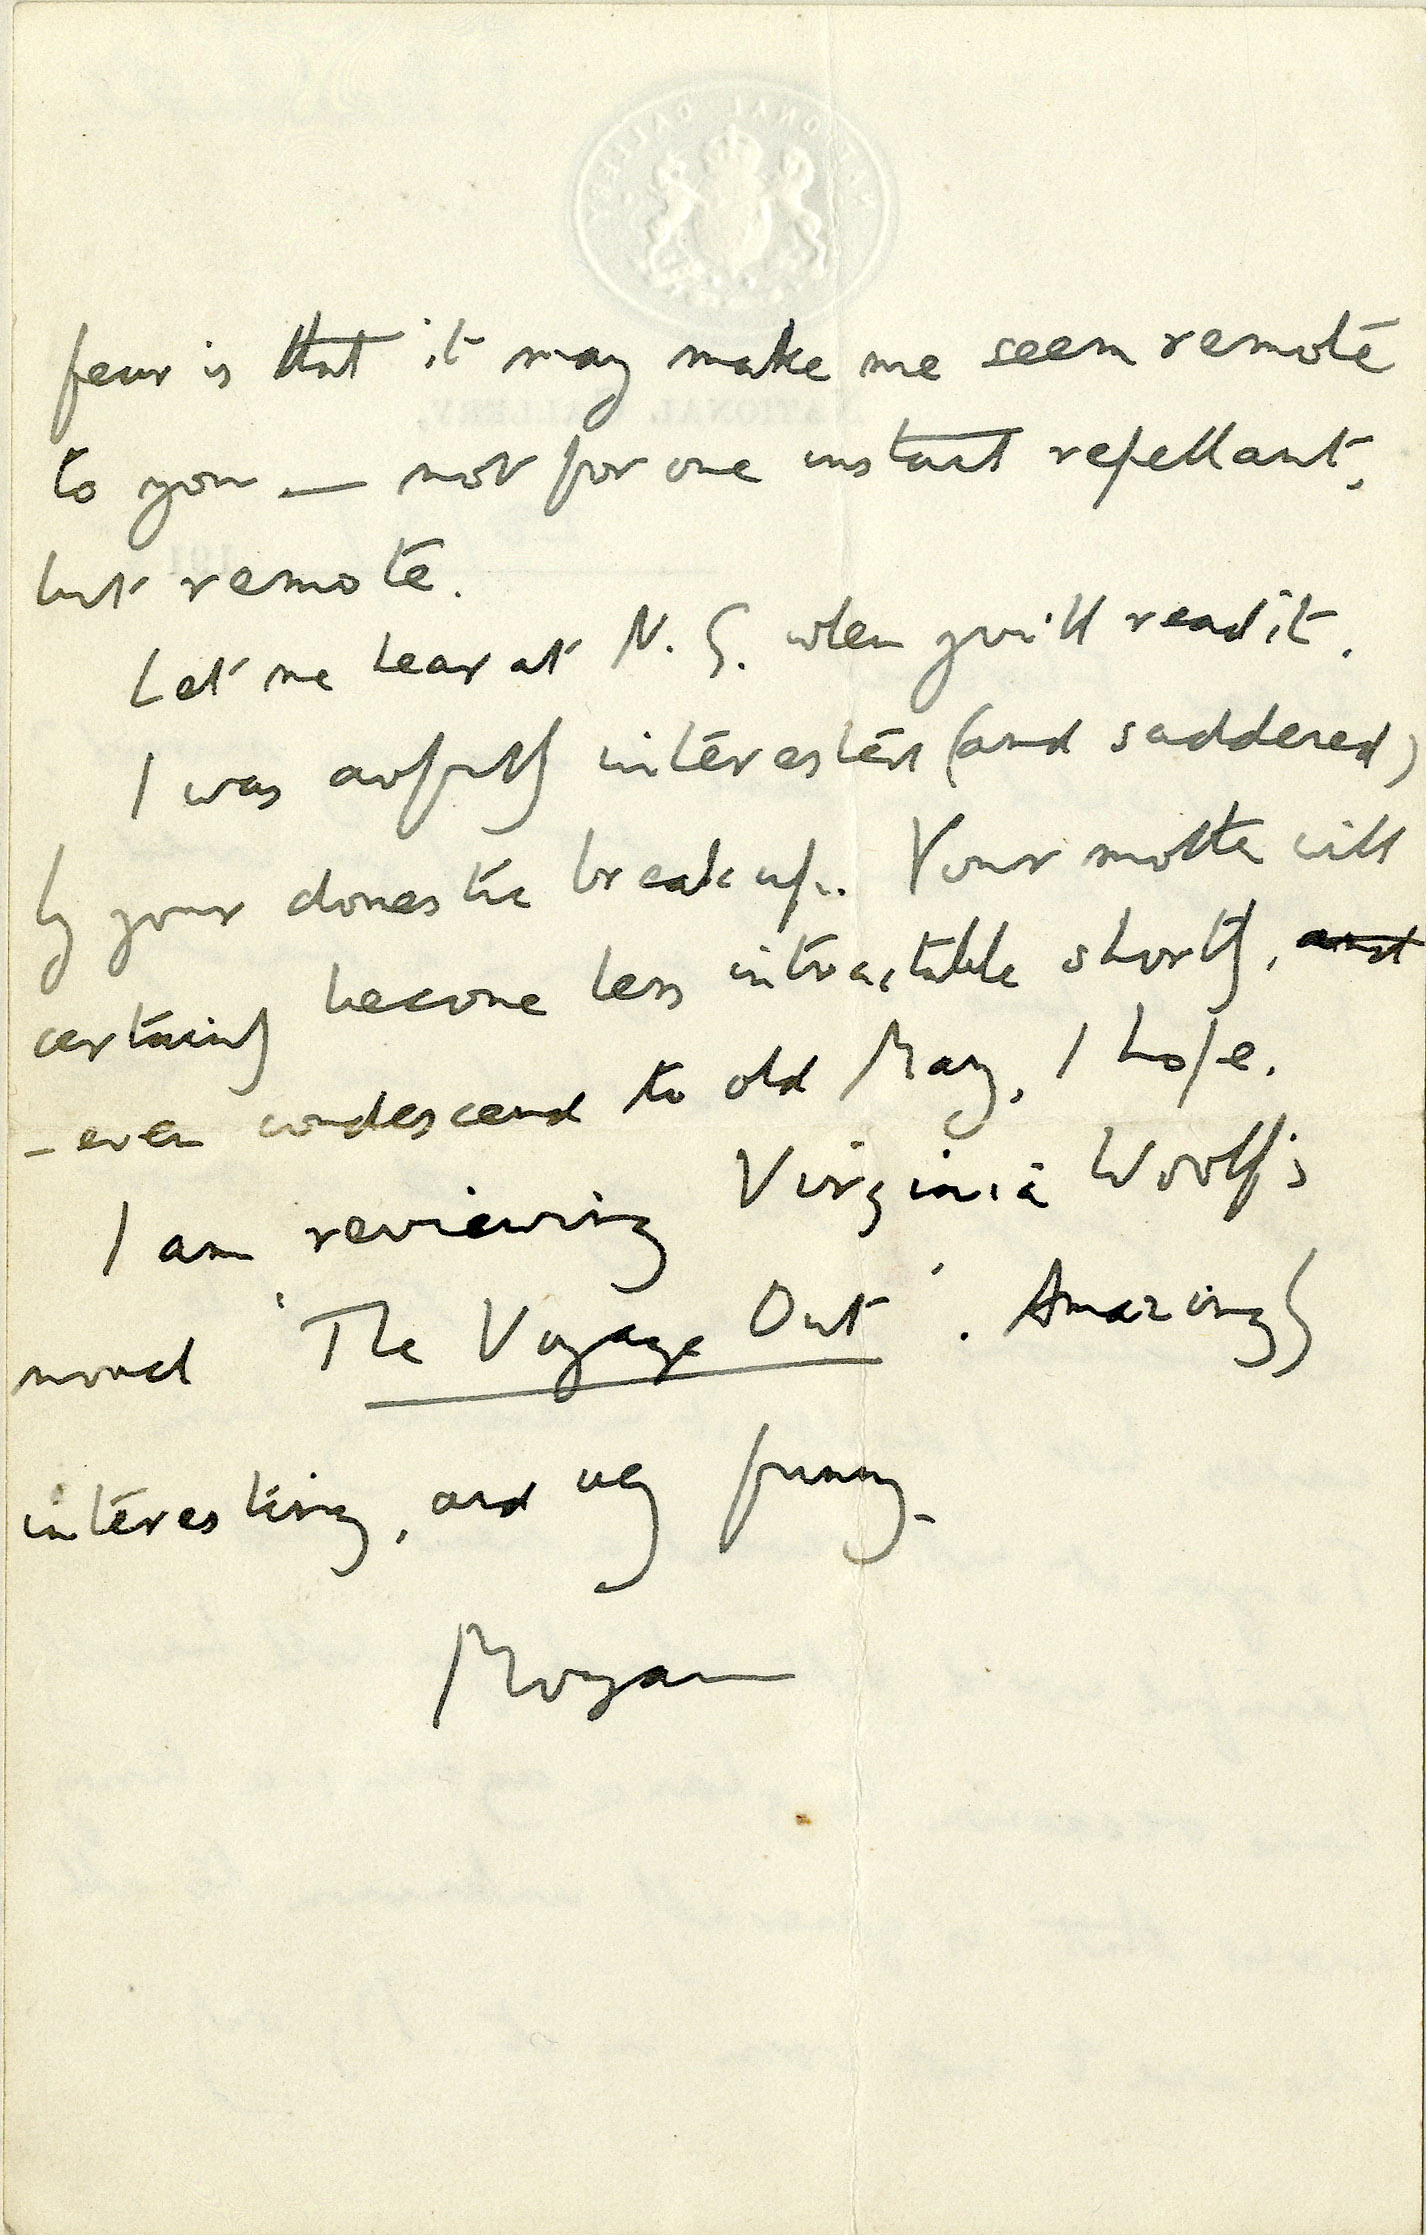 fear is that it may make me seem remote
to you — not for one instant repellant,
but remote.
Let me hear at N. G. when you'll read it.
I was awfully interested (and saddened)
by your domestic break up. Your mother will
certainly become less intractable shortly, and
– even condescend to old May, I hope.
I am reviewing Virginia Woolf's
novel 'The Voyage Out'. Amazingly
interesting, and very funny.
Morgan